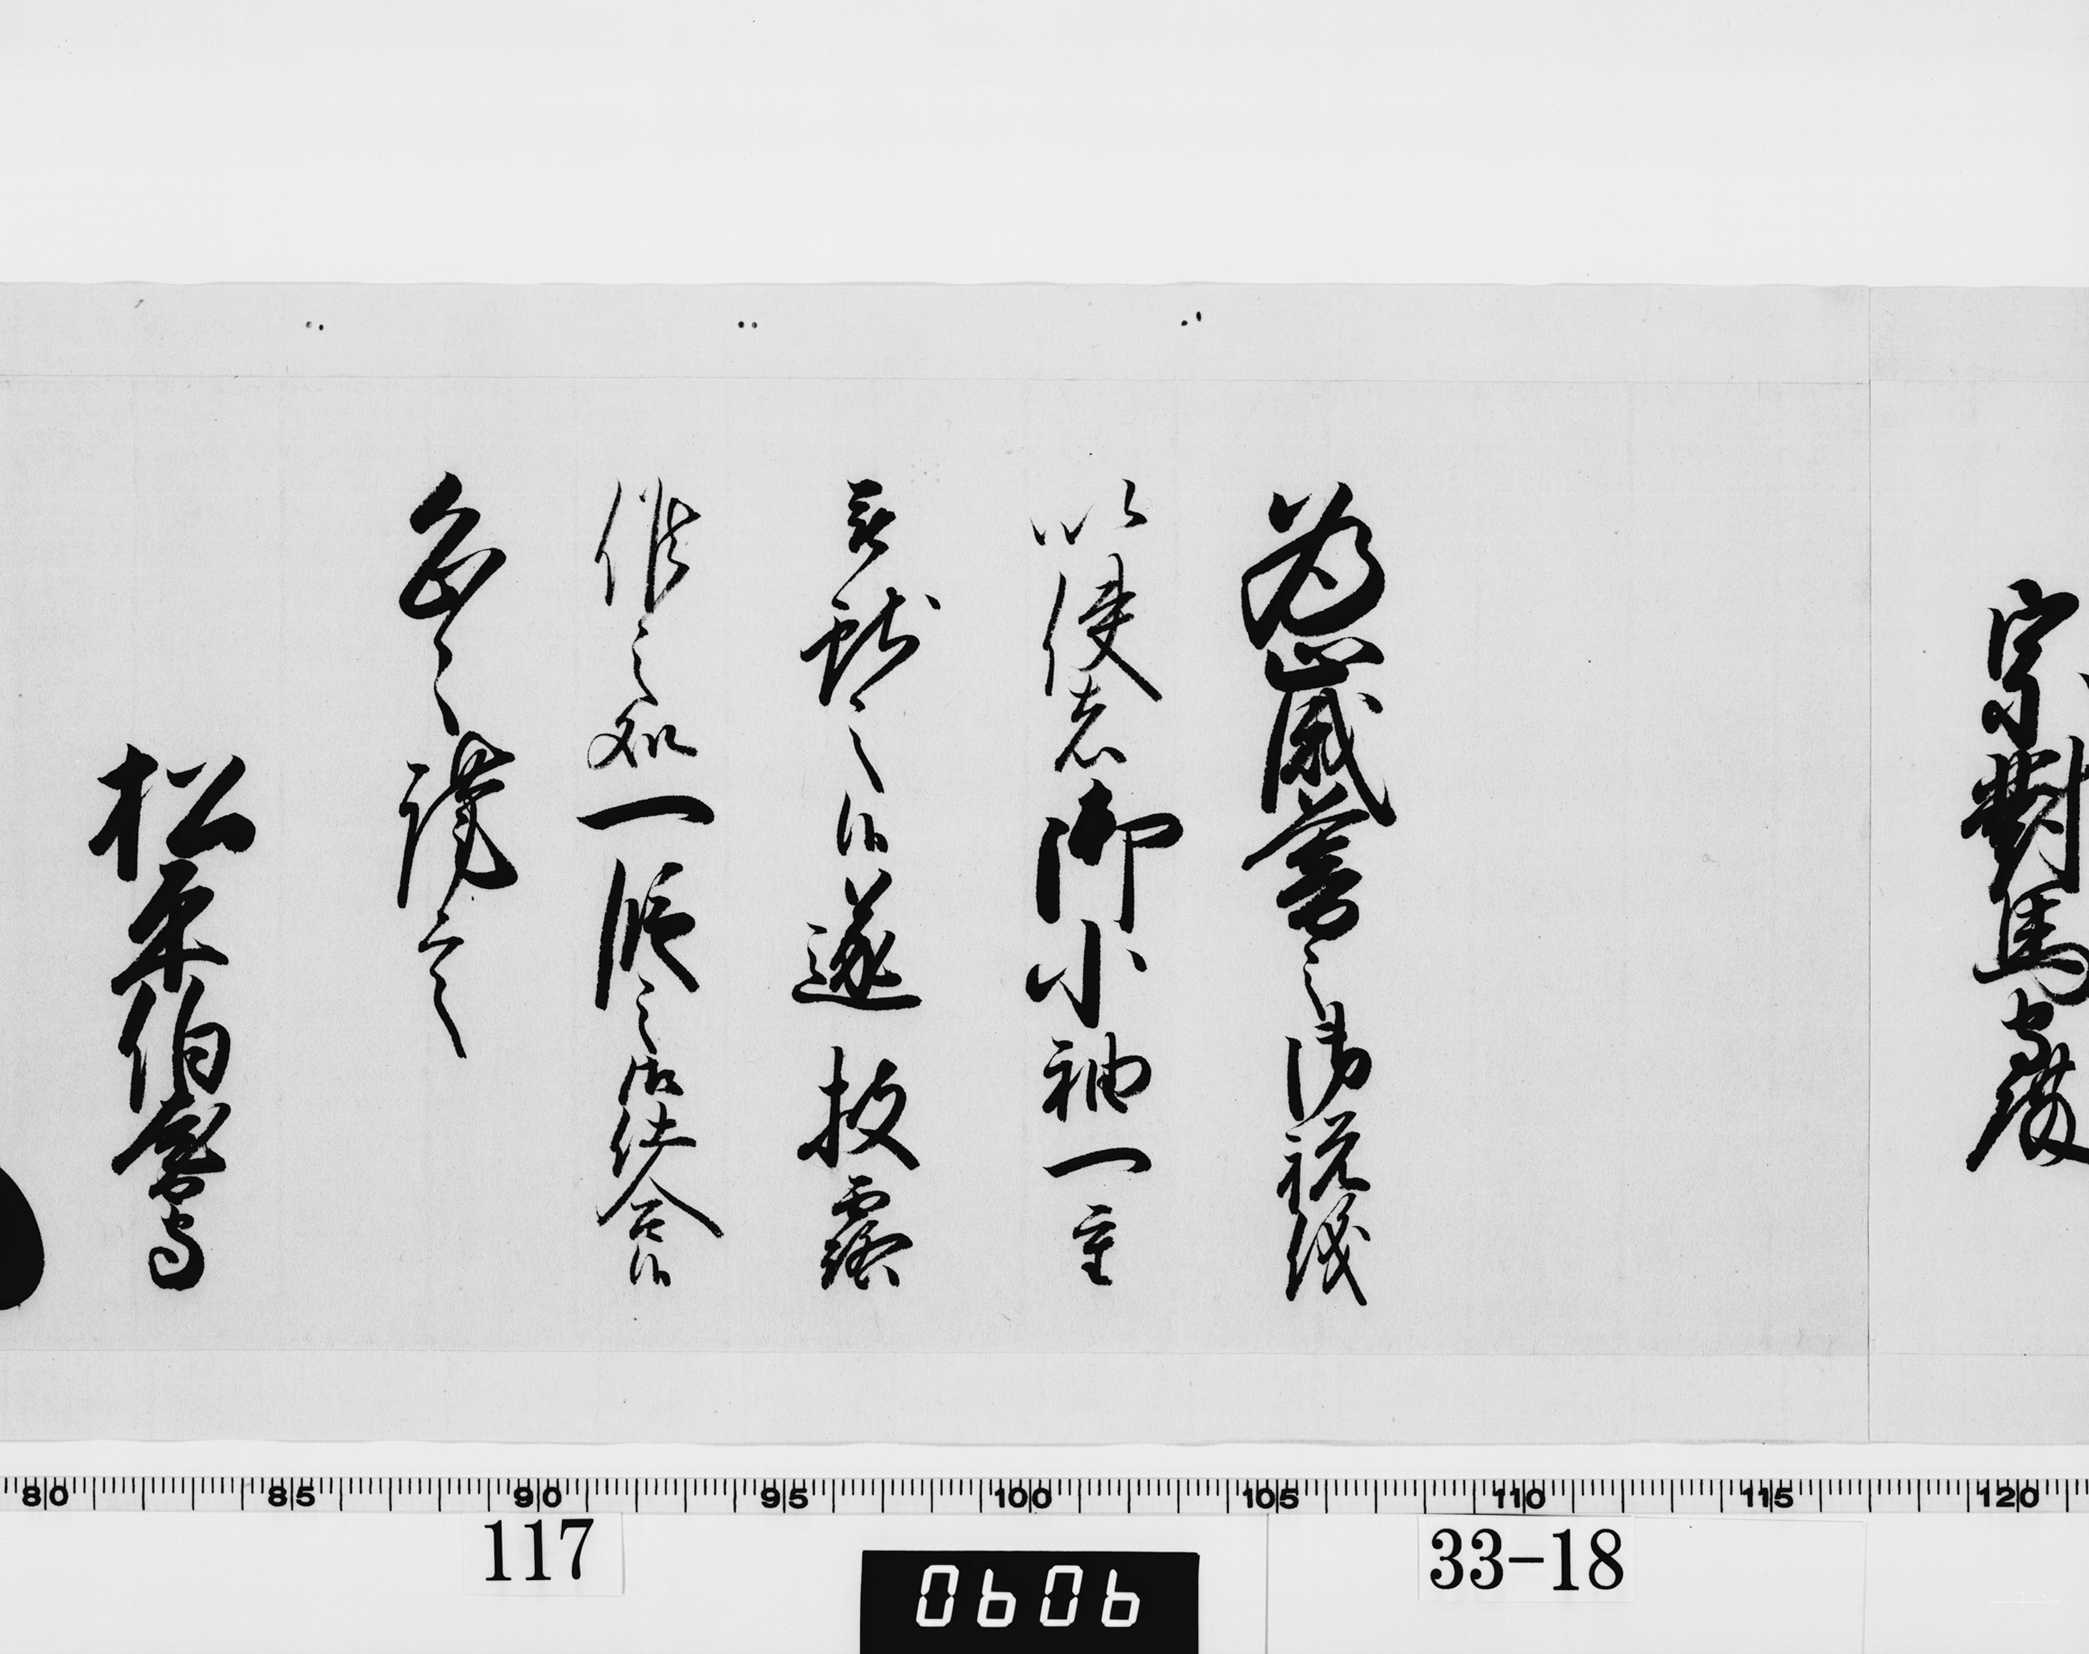 宗對馬守殿
為歳暮之御祝儀
以使者御小袖一重
被献之候遂披露
候之処一段之御仕合候
恐々謹言
松平伯耆守
80 85 90 95 100 105 110 115 120
117
0606
33-18